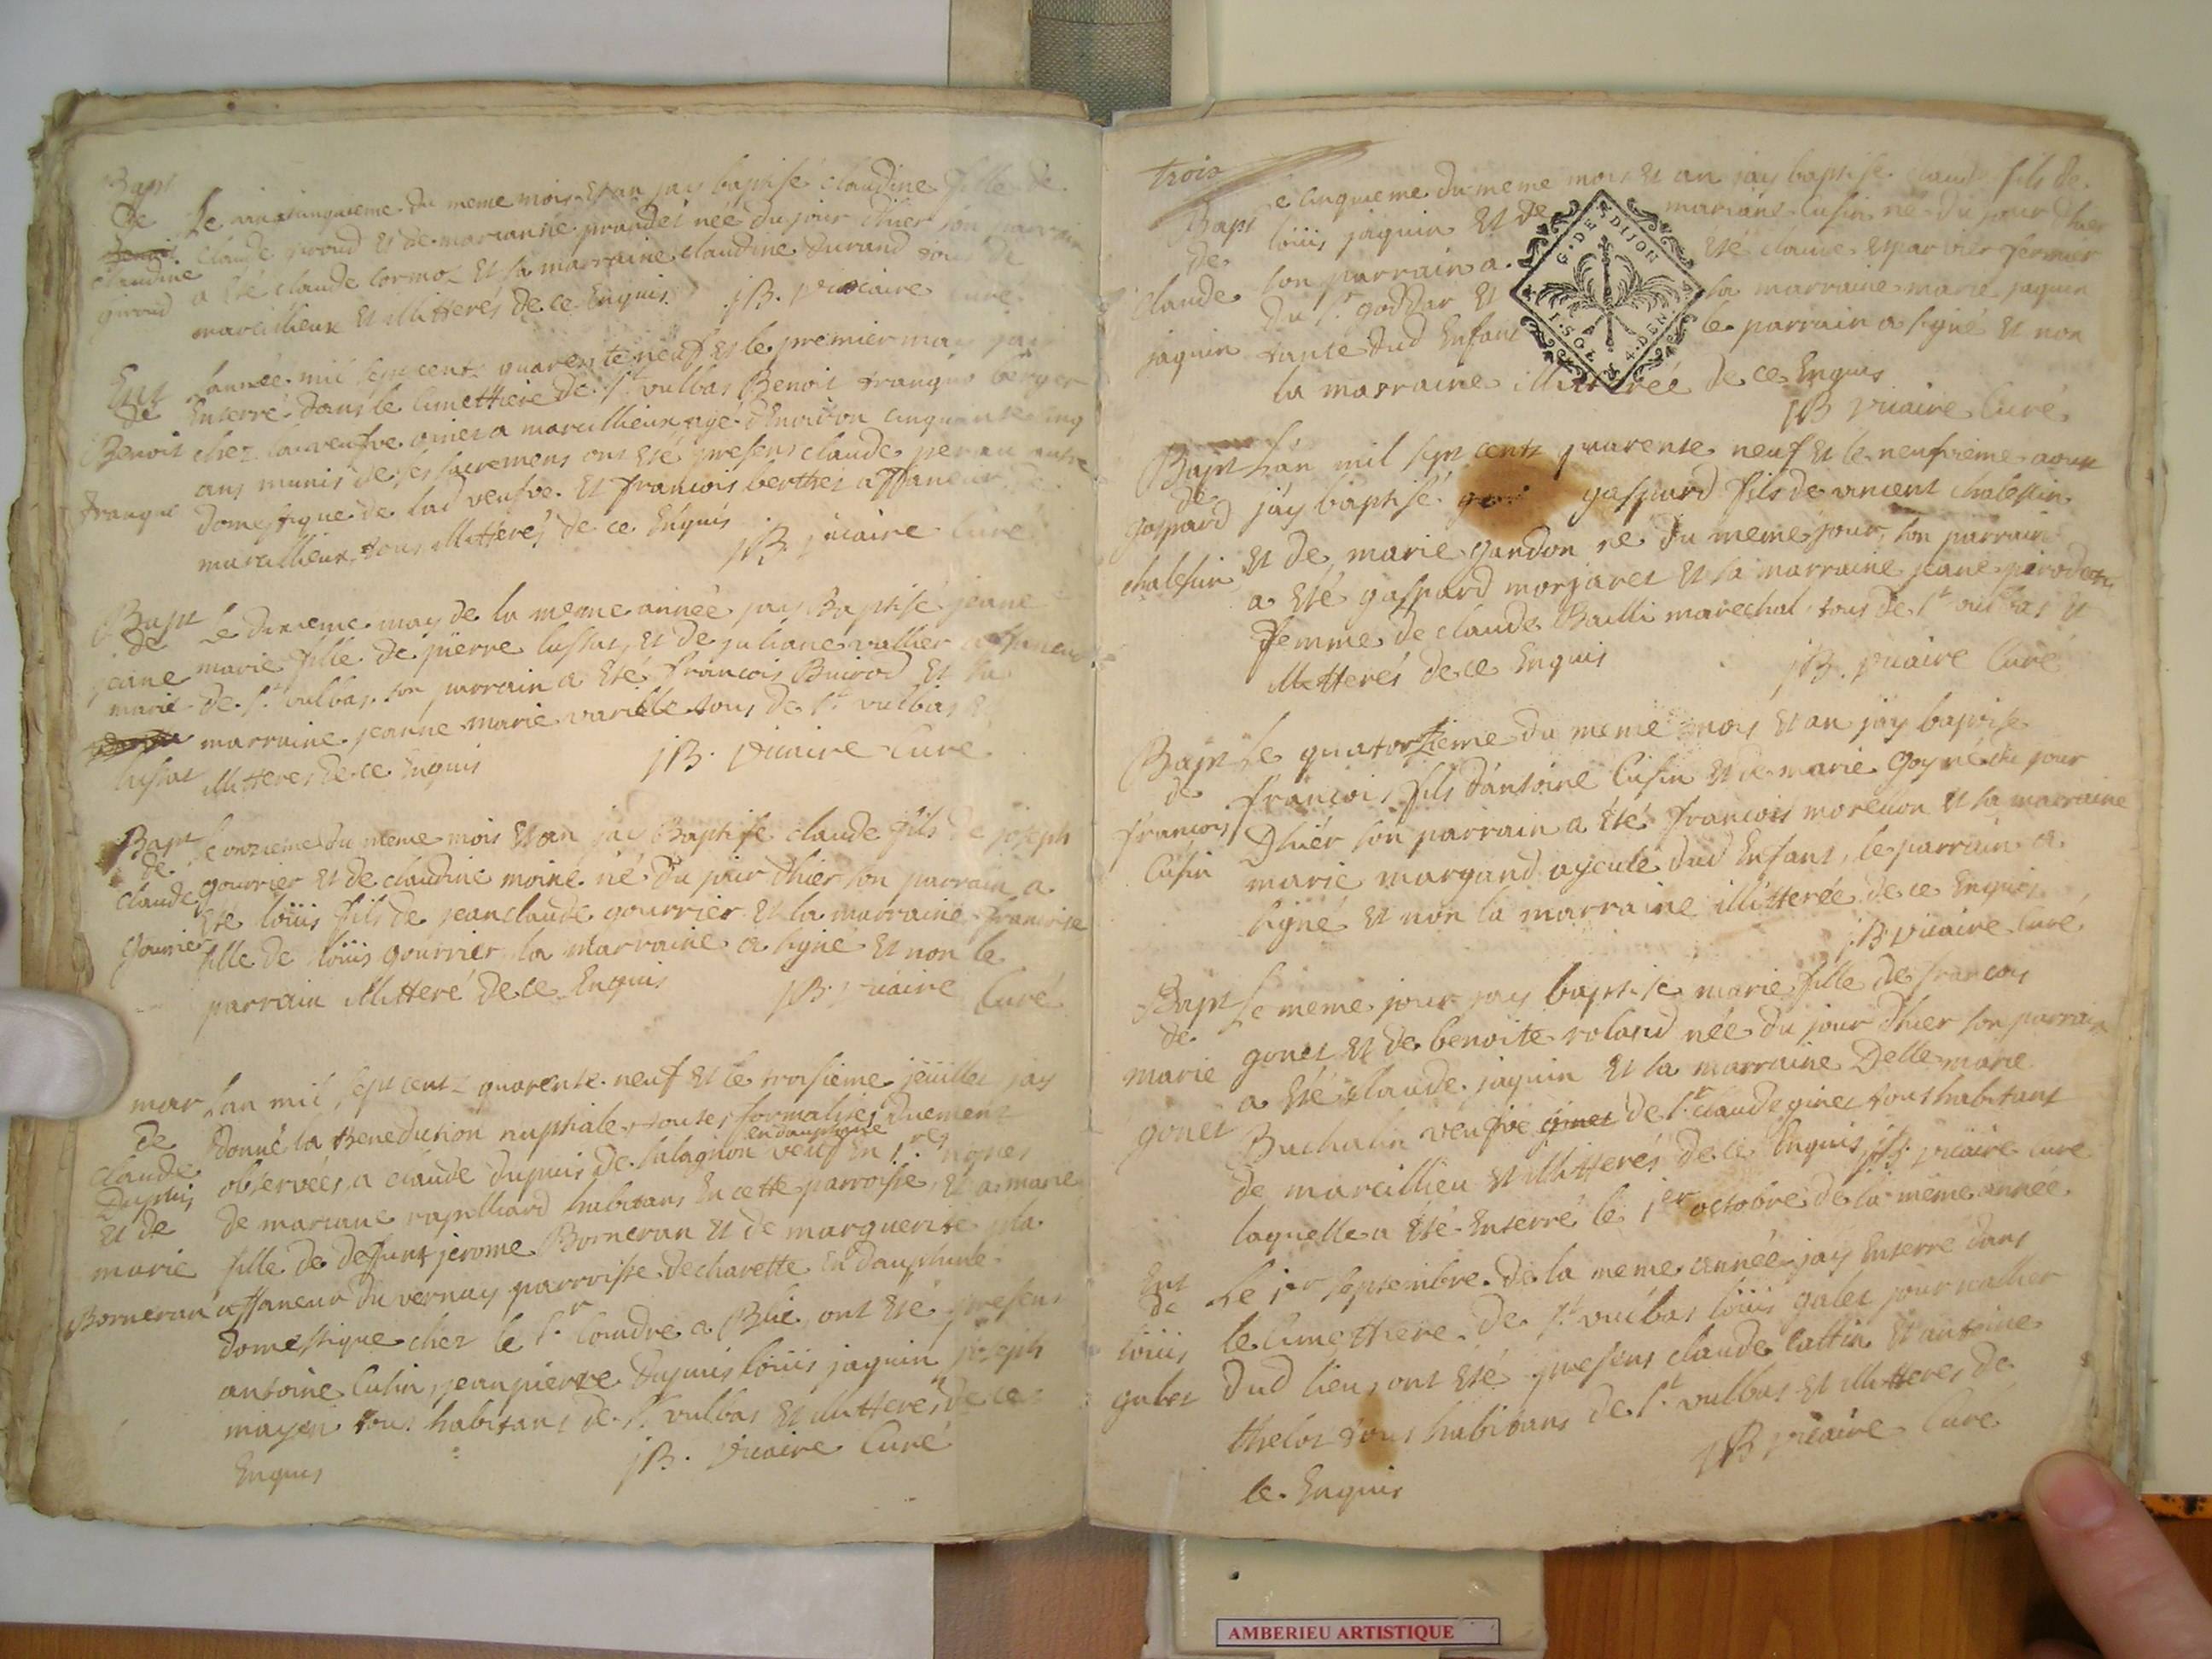 Bapt
de
claudine
giroud
Le vint cinquieme du meme mois et an jay baptisé claudine fille de
claude giroud et de marianne prandet née du jour d'hier son parrain
a été claude cormoz et sa marraine claudine durand tous de
marcillieux et illitterés de ce enquis JB. vicaire curé
Ent
de
Benoit
franqui
L'année mil sept cents quarente neuf et le premier may jay
enterré dans le cimettiere de st vulbas Benoit franqui berger
chez la veufve ginet a marcillieux agé d'environ cinquante cinq
ans munis de ses sacremens ont été presens claude
domestique de lad veufve et francois berthet affaneur de
marcillieux tous illitterés de ce enquis JB. vicaire curé
Bapt
de
jeane
marie
lussat
Le dixieme may de la meme année jay Baptisé jeane
marie fille de pierre lussat, et de juliane vallier affaneur
de st vulbas son parrain a été francois Buirod et sa
marraine jeanne marie varille tous de st vulbas et
illitteres de ce enquis JB. vicaire Curé
Bapt
de
claude
gourrier
Le onzieme du meme mois et an jay Baptise claude fils de joseph
gourrier et de claudine moine né du jour d'hier son parrain a
été loüis fils de jean claude gourrier et la marraine francoise
fille de loüis gourrier la marraine a signé et non le
parrain illitteré de ce enquis JB. vicaire Curé
mar
de
claude
Dupuis
et de
marie
Borneran
L'an mil sept cents quarente neuf et le troisieme jeuillet jay
donné la Benediction nuptiale toutes formalités duement
en dauphine
observées, a claude dupuis de salagnon veuf en 1res nopces
de mariane rapilliard habitans en cette parroisse, et a marie
fille de deffunt jerome Borneran et de marguerite pla
affaneur du vernay parroisse de charette en dauphiné
domestique chez le sr coudre a Blie ont été presens
antoine Cusin, jean pierre Dupuis loüis jaquin joseph
mayen tous habitans de st vulbas et illitterés de ce
enquis JB. vicaire Curé
trois
Bapt
de
claude
jaquin
e cinquieme du meme mois et an jay baptisé claude fils de
loüis jaquin et de mariane Cusin né du jour d'hier
son parrain a été claude fermier
du sr goddar et sa marraine marie jaquin
tante dud enfant le parrain a signé et non
la marraine illitterée de ce enquis
JB vicaire Curé
G. DE DIJON
1. SOL 4. DEN.
Bapt
de
gaspard
chalessin
L'an mil sept cents quarente neuf et le neufvieme aout
jay baptisé gaspard fils de vincent chalessin
et de marie gandon né du meme jour, son parrain
a été gaspard morjaret et sa marraine jeane
femme de claude Bailli marechal tous de st vulbas et
illitterés de ce enquis JB. vicaire Curé
Bapt
de
francois
Cusin
Le quatorzieme du meme mois et an jay baptisé
francois fils d'antoine Cusin et de marie Goy né du jour
d'hier son parrain a été francois morellon et sa marraine
marie margand ayeule dud enfant, le parrain a
signé et non la marraine illitterée de ce enquis
JB vicaire curé
Bapt
de
marie
gonet
Le meme jour jay baptisé marie fille de francois
gonet et de benoite roland née du jour d'hier son parrain
a été claude jaquin et la marraine Delle marie
Buchalin veufve ginet de sr claude ginet tous habitant
de marcillieu et illitterés de ce enquis JB vicaire curé
laquelle a été enterré le 1er octobre de la meme année
Ent
de
loüis
galet
Le 1er septembre de la meme année jay enterré dans
le cimettiere de st vulbas loüis galet journallier
dud lieu, ont été presens claude cattin et antoine
thelot tous habitans de st vulbas et illitteres de
ce enquis JB vicaire Curé
AMBERIEU ARTISTIQUE